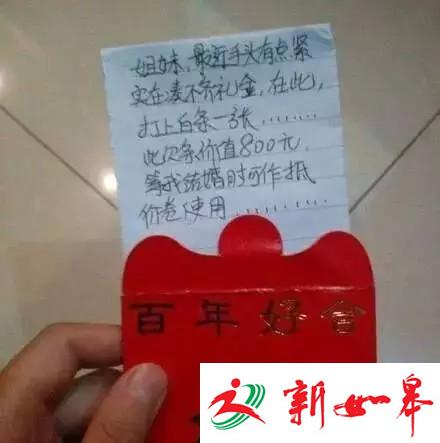 姐妹,最近手头有点紧
实在凑不齐礼金,在此,
打上白条一张.......
此欠条价值800元.
等我结婚时可作抵
价卷使用..........
百年好合
新如皋